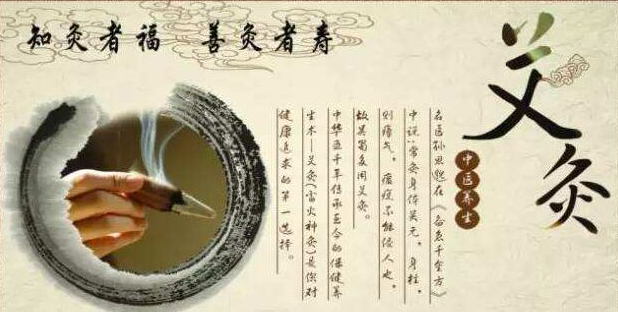 知灸者福 善灸者寿
艾灸
中医养生
名医孙思邈在《备急千金方》
中说:常灸身体关元，身柱，
则瘴气，瘟疫不能侵人也，
故吴蜀多用艾灸。
中华医千年传承至今的保健养
生术—艾灸(雷火神灸)是你对
健康追求的第一选择。